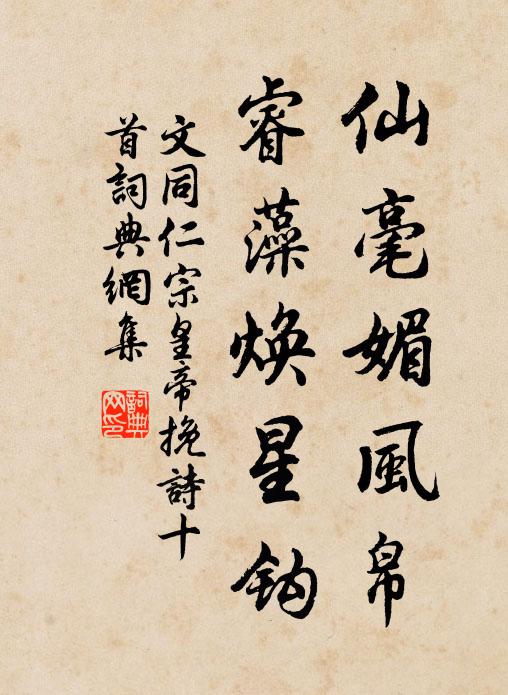 仙毫媚風帛
睿藻焕星鈎
文同仁宗皇帝挽詩十
首詞典網集
詞典
网印